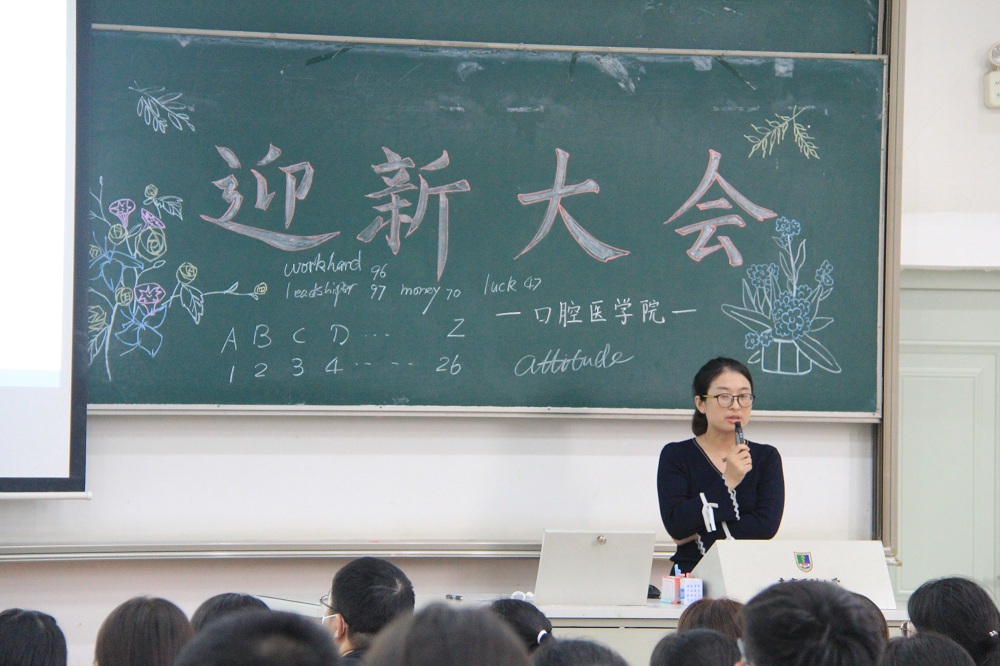 迎新大会
workhard 96
leadshiper 97 money 70 luck 47
—口腔医学院—
A B C D ··· Z
1 2 3 4 ······ 26
attitude